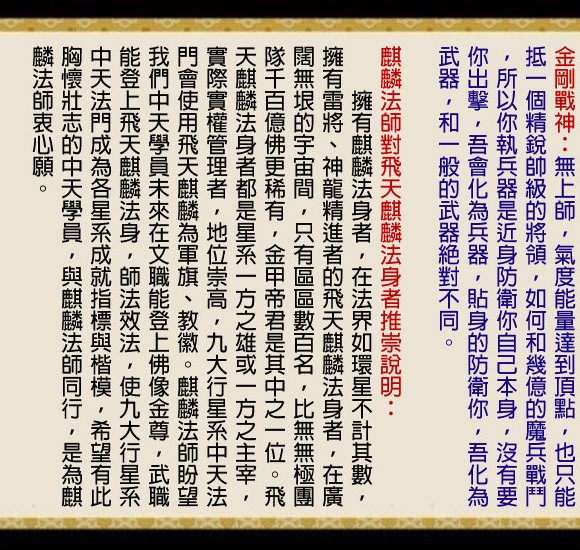 金剛戰神：無上師，氣度能量達到頂點，也只能
抵一個精銳帥級的將領，如何和幾億的魔兵戰鬥
，所以你執兵器是近身防衛你自己本身，沒有要
你出擊，吾會化為兵器，貼身的防衛你，吾化為
武器，和一般的武器絕對不同。
麒麟法師對飛天麒麟法身者推崇說明：
擁有麒麟法身者，在法界如環星不計其數，
擁有雷將、神龍精進者的飛天麒麟法身者，在廣
闊無垠的宇宙間，只有區區數百名，比無無極團
隊千百億佛更稀有，金甲帝君是其中之一位。飛
天麒麟法身者都是星系一方之雄或一方之主宰，
實際實權管理者，地位崇高，九大行星系中天法
門會使用飛天麒麟為軍旗、教徽。麒麟法師盼望
我們中天學員未來在文職能登上佛像金尊，武職
能登上飛天麒麟法身，師法效法，使九大行星系
中天法門成為各星系成就指標與楷模，希望有此
胸懷壯志的中天學員，與麒麟法師同行，是為麒
麟法師衷心願。